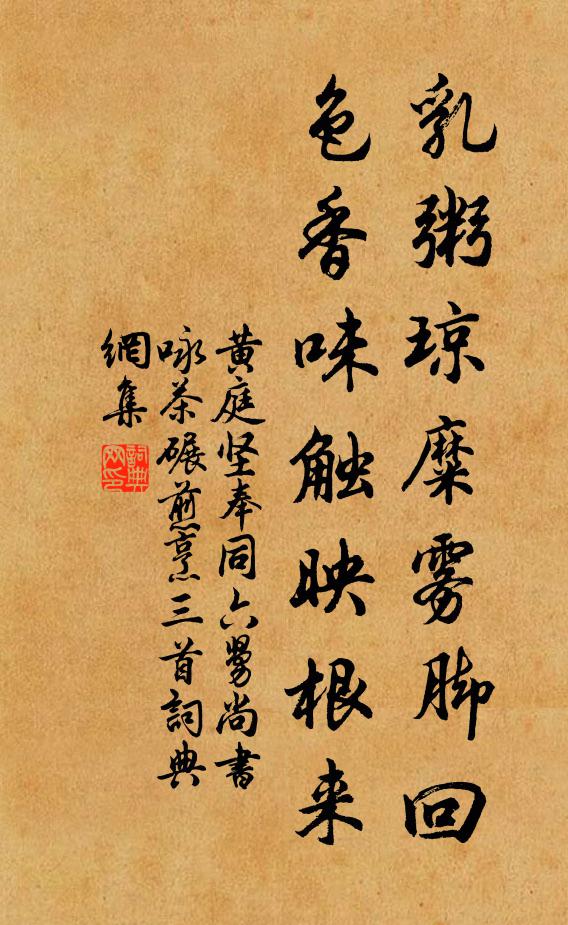 乳粥琼糜雾脚回
色香味触映根来
黄庭坚奉同六舅尚書
咏茶碾煎烹三首詞典
網集
詞典
网印